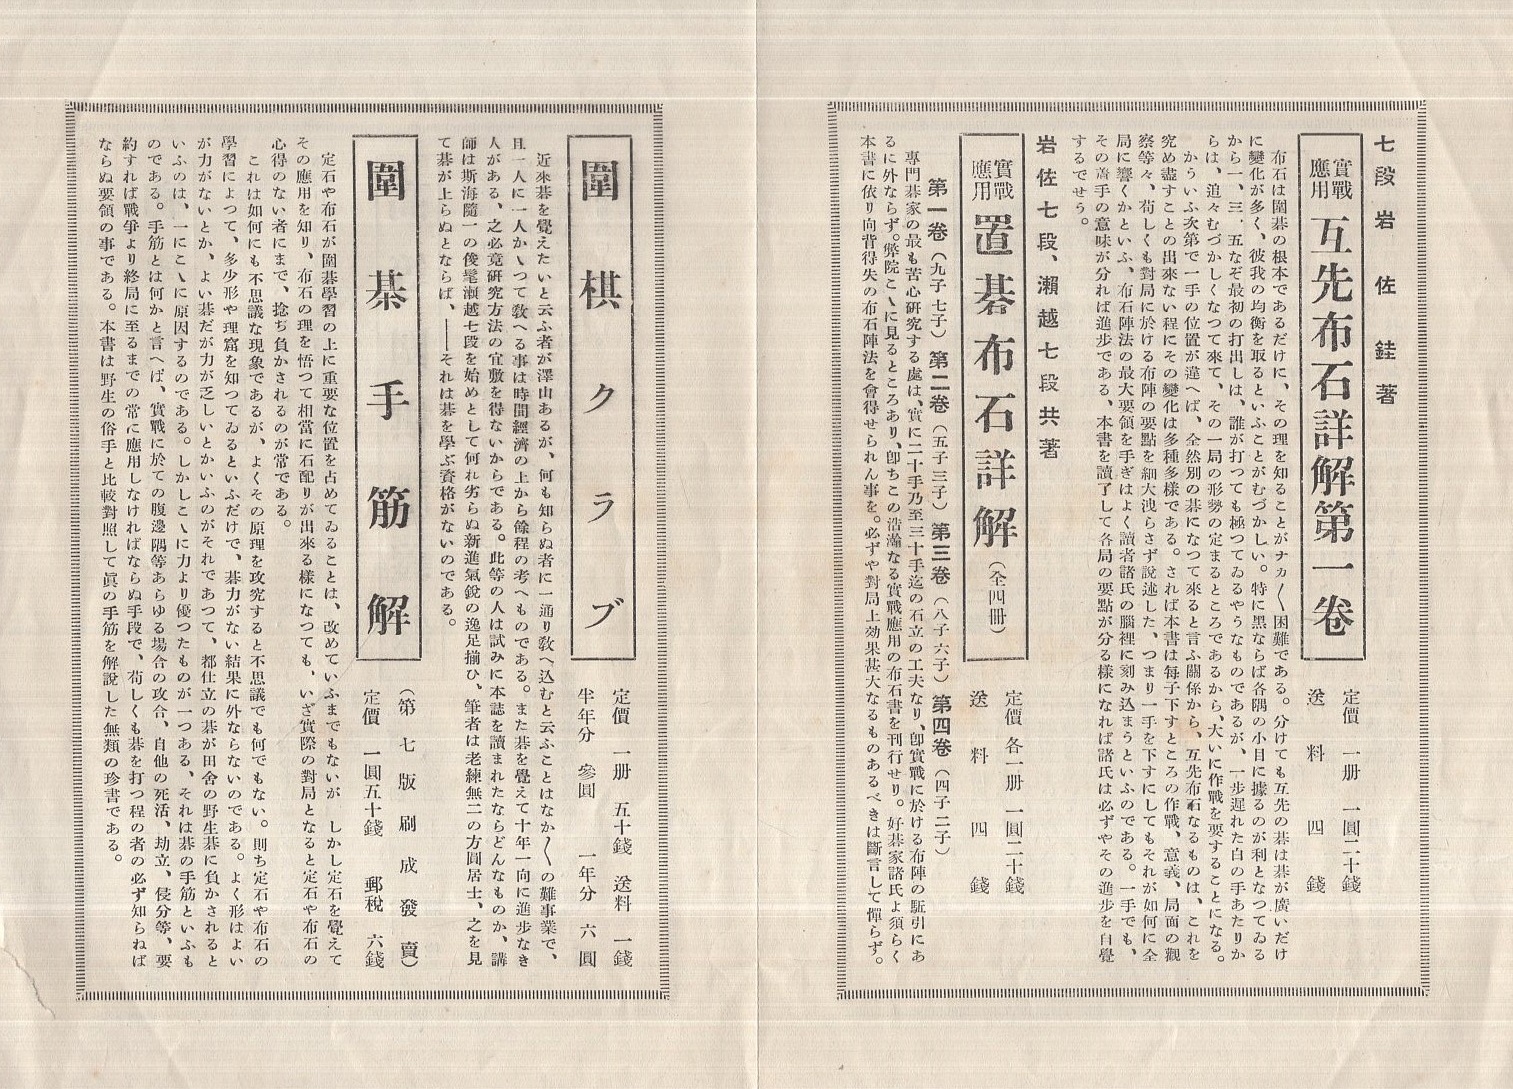 七段 岩佐銈著
實戰應用 互先布石詳解第一卷
定價 一册 一圓二十錢
送料 四錢
布石は圍碁の根本であるだけに、その理を知ることがナカ〱困難である。分けても互先の碁は碁が廣いだけ
に變化が多く、彼我の均衡を取るといふことがむづかしい。特に黑ならば各隅の小目に據るのが利となつてゐる
から一、三、五なぞ最初の打出しは、誰が打つても極つてゐるやうなものであるが、一步遲れた白の手あたりか
らは、追々むづかしくなつて來て、その一局の形勢の定まるところであるから、大いに作戰を要することになる。
かういふ次第で一手の位置が違へば、全然別の碁になつて來ると言ふ關係から、互先布石なるものは、これを
究め盡すことの出來ない程にその變化は多種多樣である。されば本書は每子下すところの作戰、意義、局面の觀
察等々、苟しくも對局に於ける布陣の要點を細大洩らさず說述した、つまり一手を下すにしてもそれが如何に全
局に響くかといふ、布石陣法の最大要領を手ぎはよく讀者諸氏の腦裡に刻み込まうといふのである。一手でも、
その高手の意味が分れば進步である、本書を讀了して各局の要點が分る樣になれば諸氏は必ずやその進步を自覺
するでせう。
岩佐七段、瀨越七段共著
實戰應用 置碁布石詳解(全四册)
定價 各一册 一圓二十錢
送料 四錢
第一卷(九子七子)第二卷(五子三子)第三卷(八子六子)第四卷(四子二子)
專門碁家の最も苦心研究する處は、實に二十手乃至三十手迄の石立の工夫なり、卽實戰に於ける布陣の駈引にあ
るに外ならず。弊院こゝに見るところあり、卽ちこの浩瀚なる實戰應用の布石書を刊行せり。好碁家諸氏よ須らく
本書に依り向背得失の布石陣法を會得せられん事を。必ずや對局上効果甚大なるものあるべきは斷言して憚らず。
圍棋クラブ
定價 一册 五十錢 送料 一錢
半年分 參圓 一年分 六圓
近來碁を覺えたいと云ふ者が澤山あるが、何も知らぬ者に一通り敎へ込むと云ふことはなか〱の難事業で、
且一人に一人かゝつて敎へる事は時間經濟の上から餘程の考へものである。また碁を覺えて十年一向に進步なき
人がある、之必竟硏究方法の宜敷を得ないからである。此等の人は試みに本誌を讀まれたならどんなものか、講
師は斯海隨一の俊髦瀨越七段を始めとして何れ劣らぬ新進氣銳の逸足揃ひ、筆者は老練無二の方圓居士、之を見
て碁が上らぬとならば、――それは碁を學ぶ資格がないのである。
圍棊手筋解
(第七版刷成發賣)
定價 一圓五十錢 郵稅 六錢
定石や布石が圍碁學習の上に重要な位置を占めてゐることは、改めていふまでもないが しかし定石を覺えて
その應用を知り、布石の理を悟つて相當に石配りが出來る樣になつても、いざ實際の對局となると定石や布石の
心得のない者にまで、捻ぢ負かされるのが常である。
これは如何にも不思議な現象であるが、よくその原理を攻究すると不思議でも何でもない。則ち定石や布石の
學習によつて、多少形や理窟を知つてゐるといふだけで、碁力がない結果に外ならないのである。よく形はよい
が力がないとか、よい碁だが力が乏しいとかいふのがそれであつて、都仕立の碁が田舍の野生碁に負かされると
いふのは、一にこゝに原因するのである。しかしこゝに力より優つたものが一つある、それは碁の手筋といふも
のである。手筋とは何かと言へば、實戰に於ての腹邊隅等あらゆる場合の攻合、自他の死活、劫立、侵分等、要
約すれば戰爭より終局に至るまでの常に應用しなければならぬ手段で、苟しくも碁を打つ程の者の必ず知らねば
ならぬ要領の事である。本書は野生の俗手と比較對照して眞の手筋を解說した無類の珍書である。